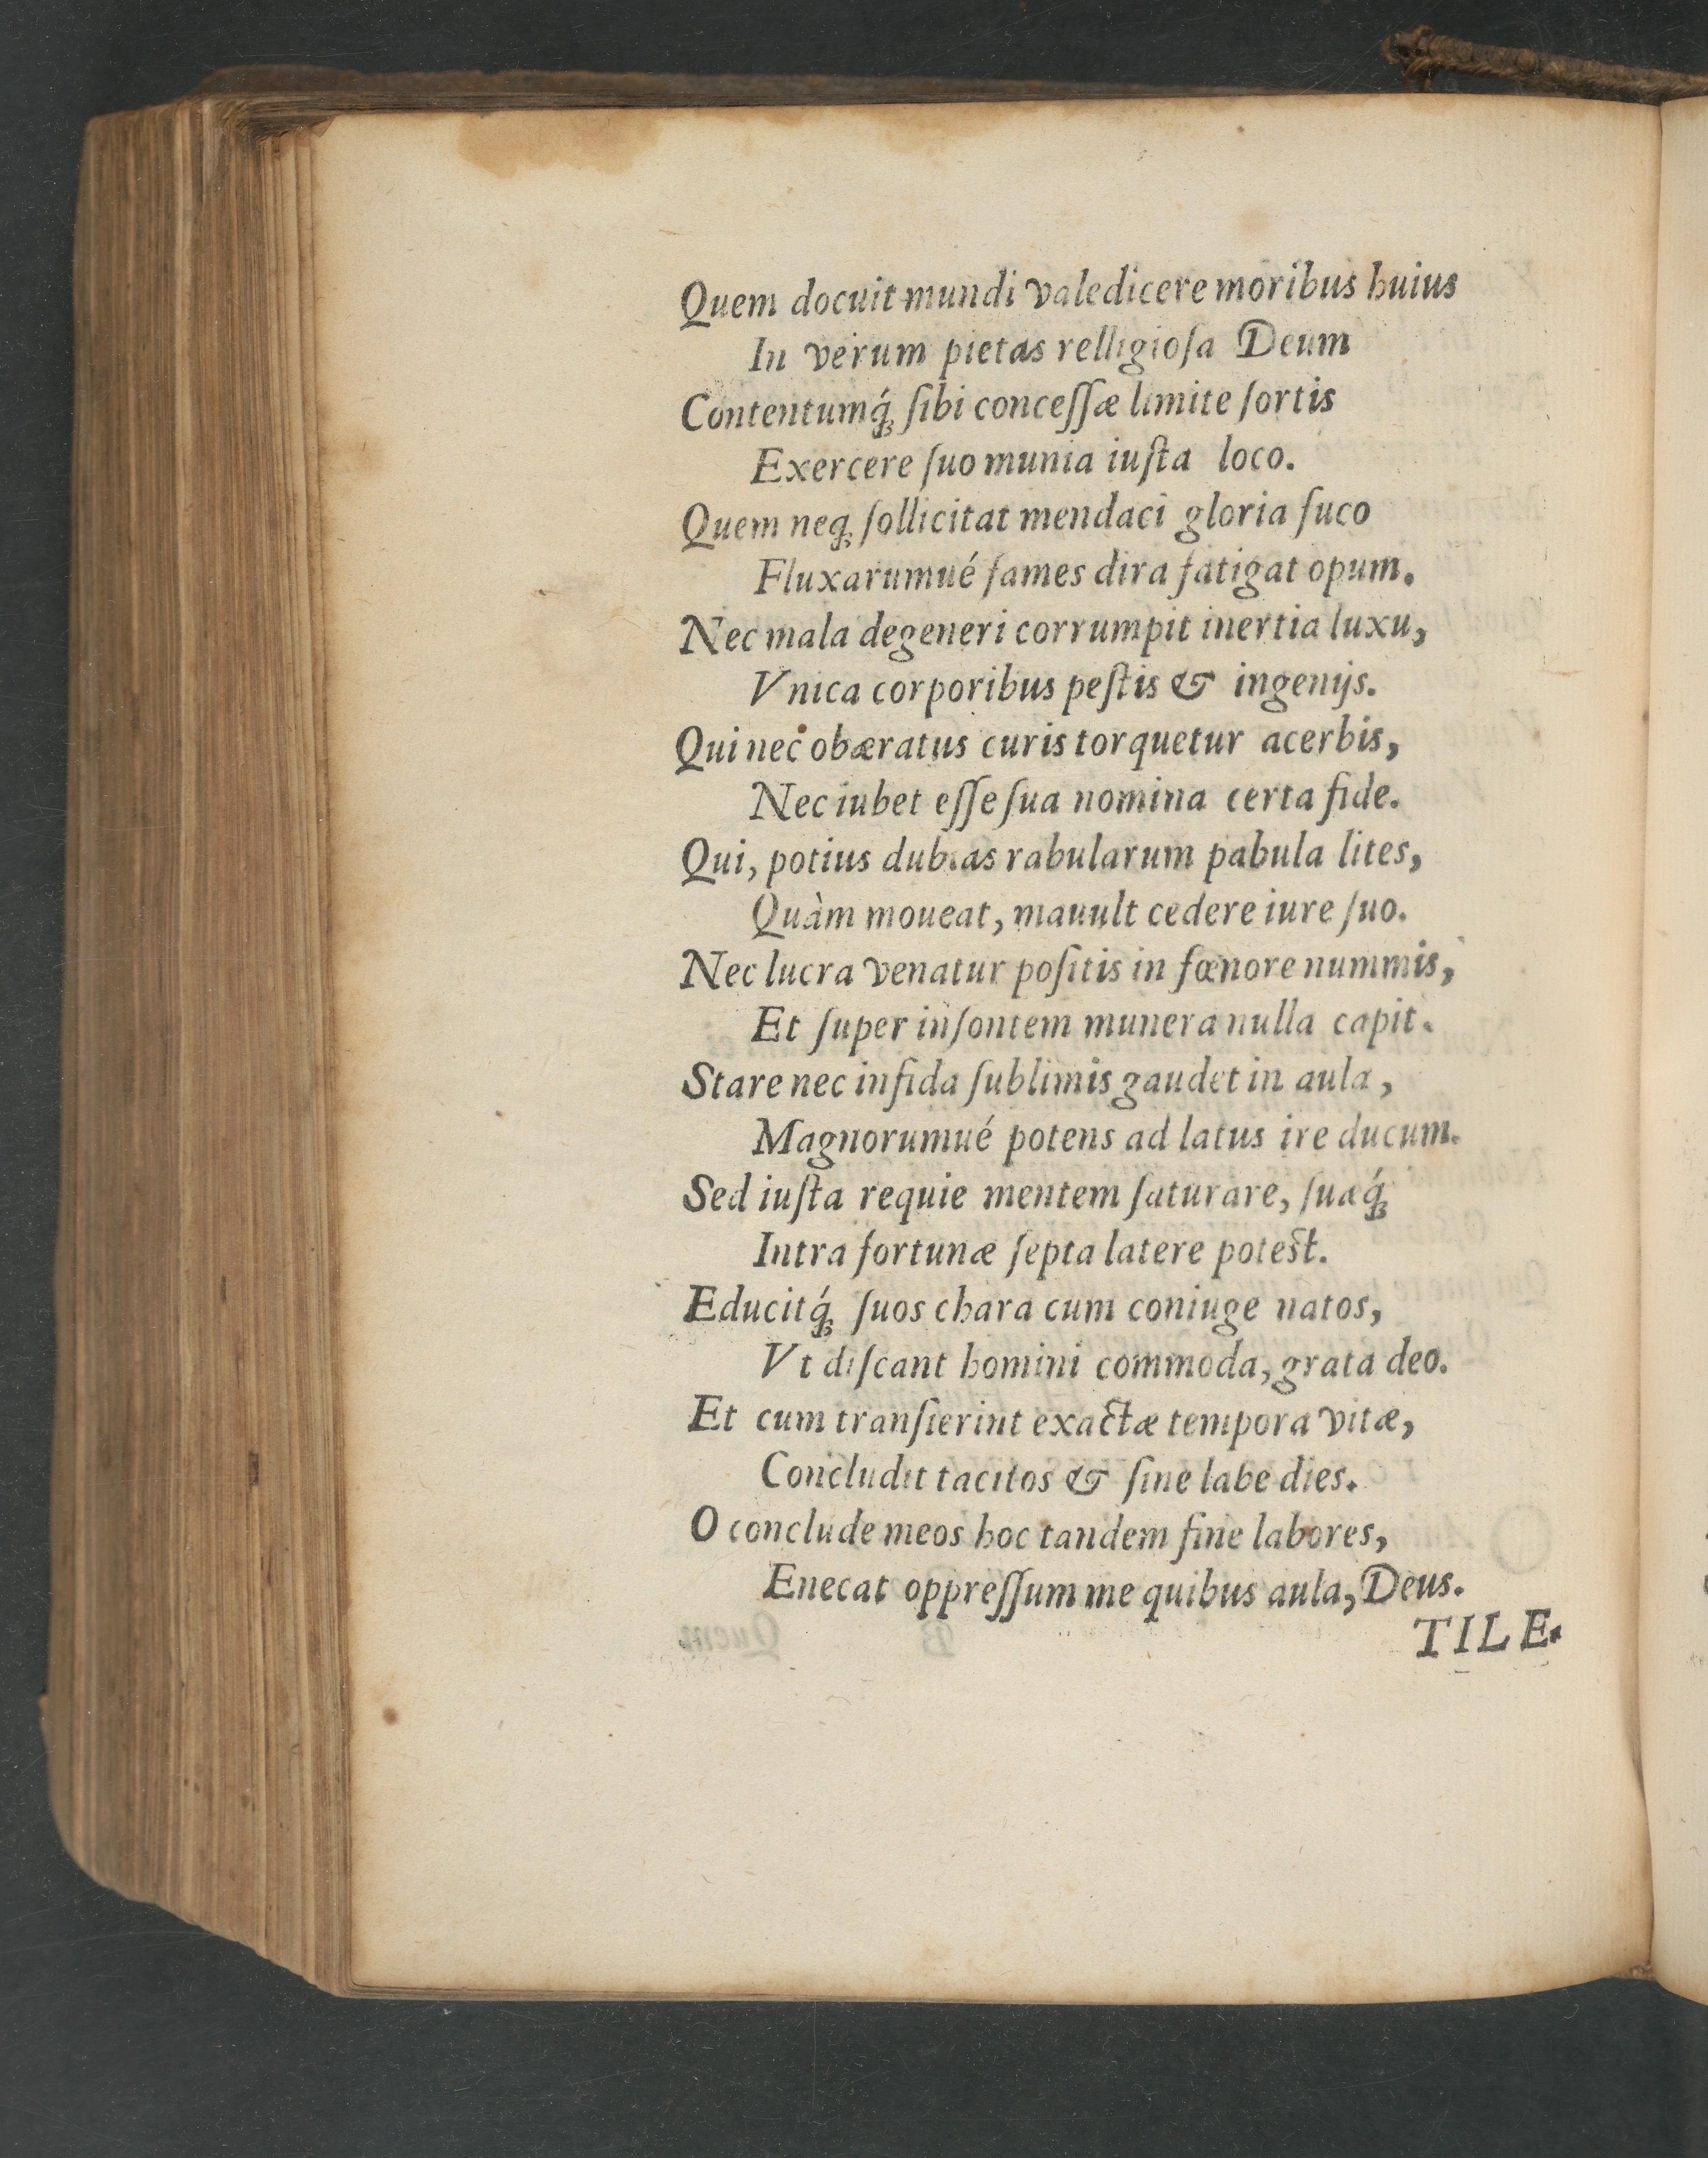 Quem docuit mundi valedicere moribus huius
In verum pietas relligioſa Deum
Contentumq́ꝫ ſibi conceſſæ limite ſortis
Exercere ſuo munia iuſta loco.
Quem neqꝫ ſollicitat mendaci gloria fuco
Fluxarumué fames dira fatigat opum.
Nec mala degeneri corrumpit inertia luxu,
Vnica corporibus peſtis & ingenijs.
Qui nec obæratus curis torquetur acerbis,
Nec iubet eſſe ſua nomina certa fide.
Qui, potius dubias rabularum pabula lites,
Quàm moueat, mauult cedere iure ſuo.
Nec lucra venatur poſitis in fœnore nummis,
Et ſuper inſontem munera nulla capit.
Stare nec infida ſublimis gaudet in aula,
Magnorumué potens ad latus ire ducum.
Sed iuſta requie mentem ſaturare, ſuæq́ꝫ
Intra fortunæ ſepta latere poteſt.
Educitq́ꝫ ſuos chara cum coniuge natos,
Vt diſcant homini commoda, grata deo.
Et cum tranſierint exactæ tempora vitæ,
Concludit tacitos & ſine labe dies.
O conclude meos hoc tandem fine labores,
Enecat oppreſſum me quibus aula, Deus.
TILE.